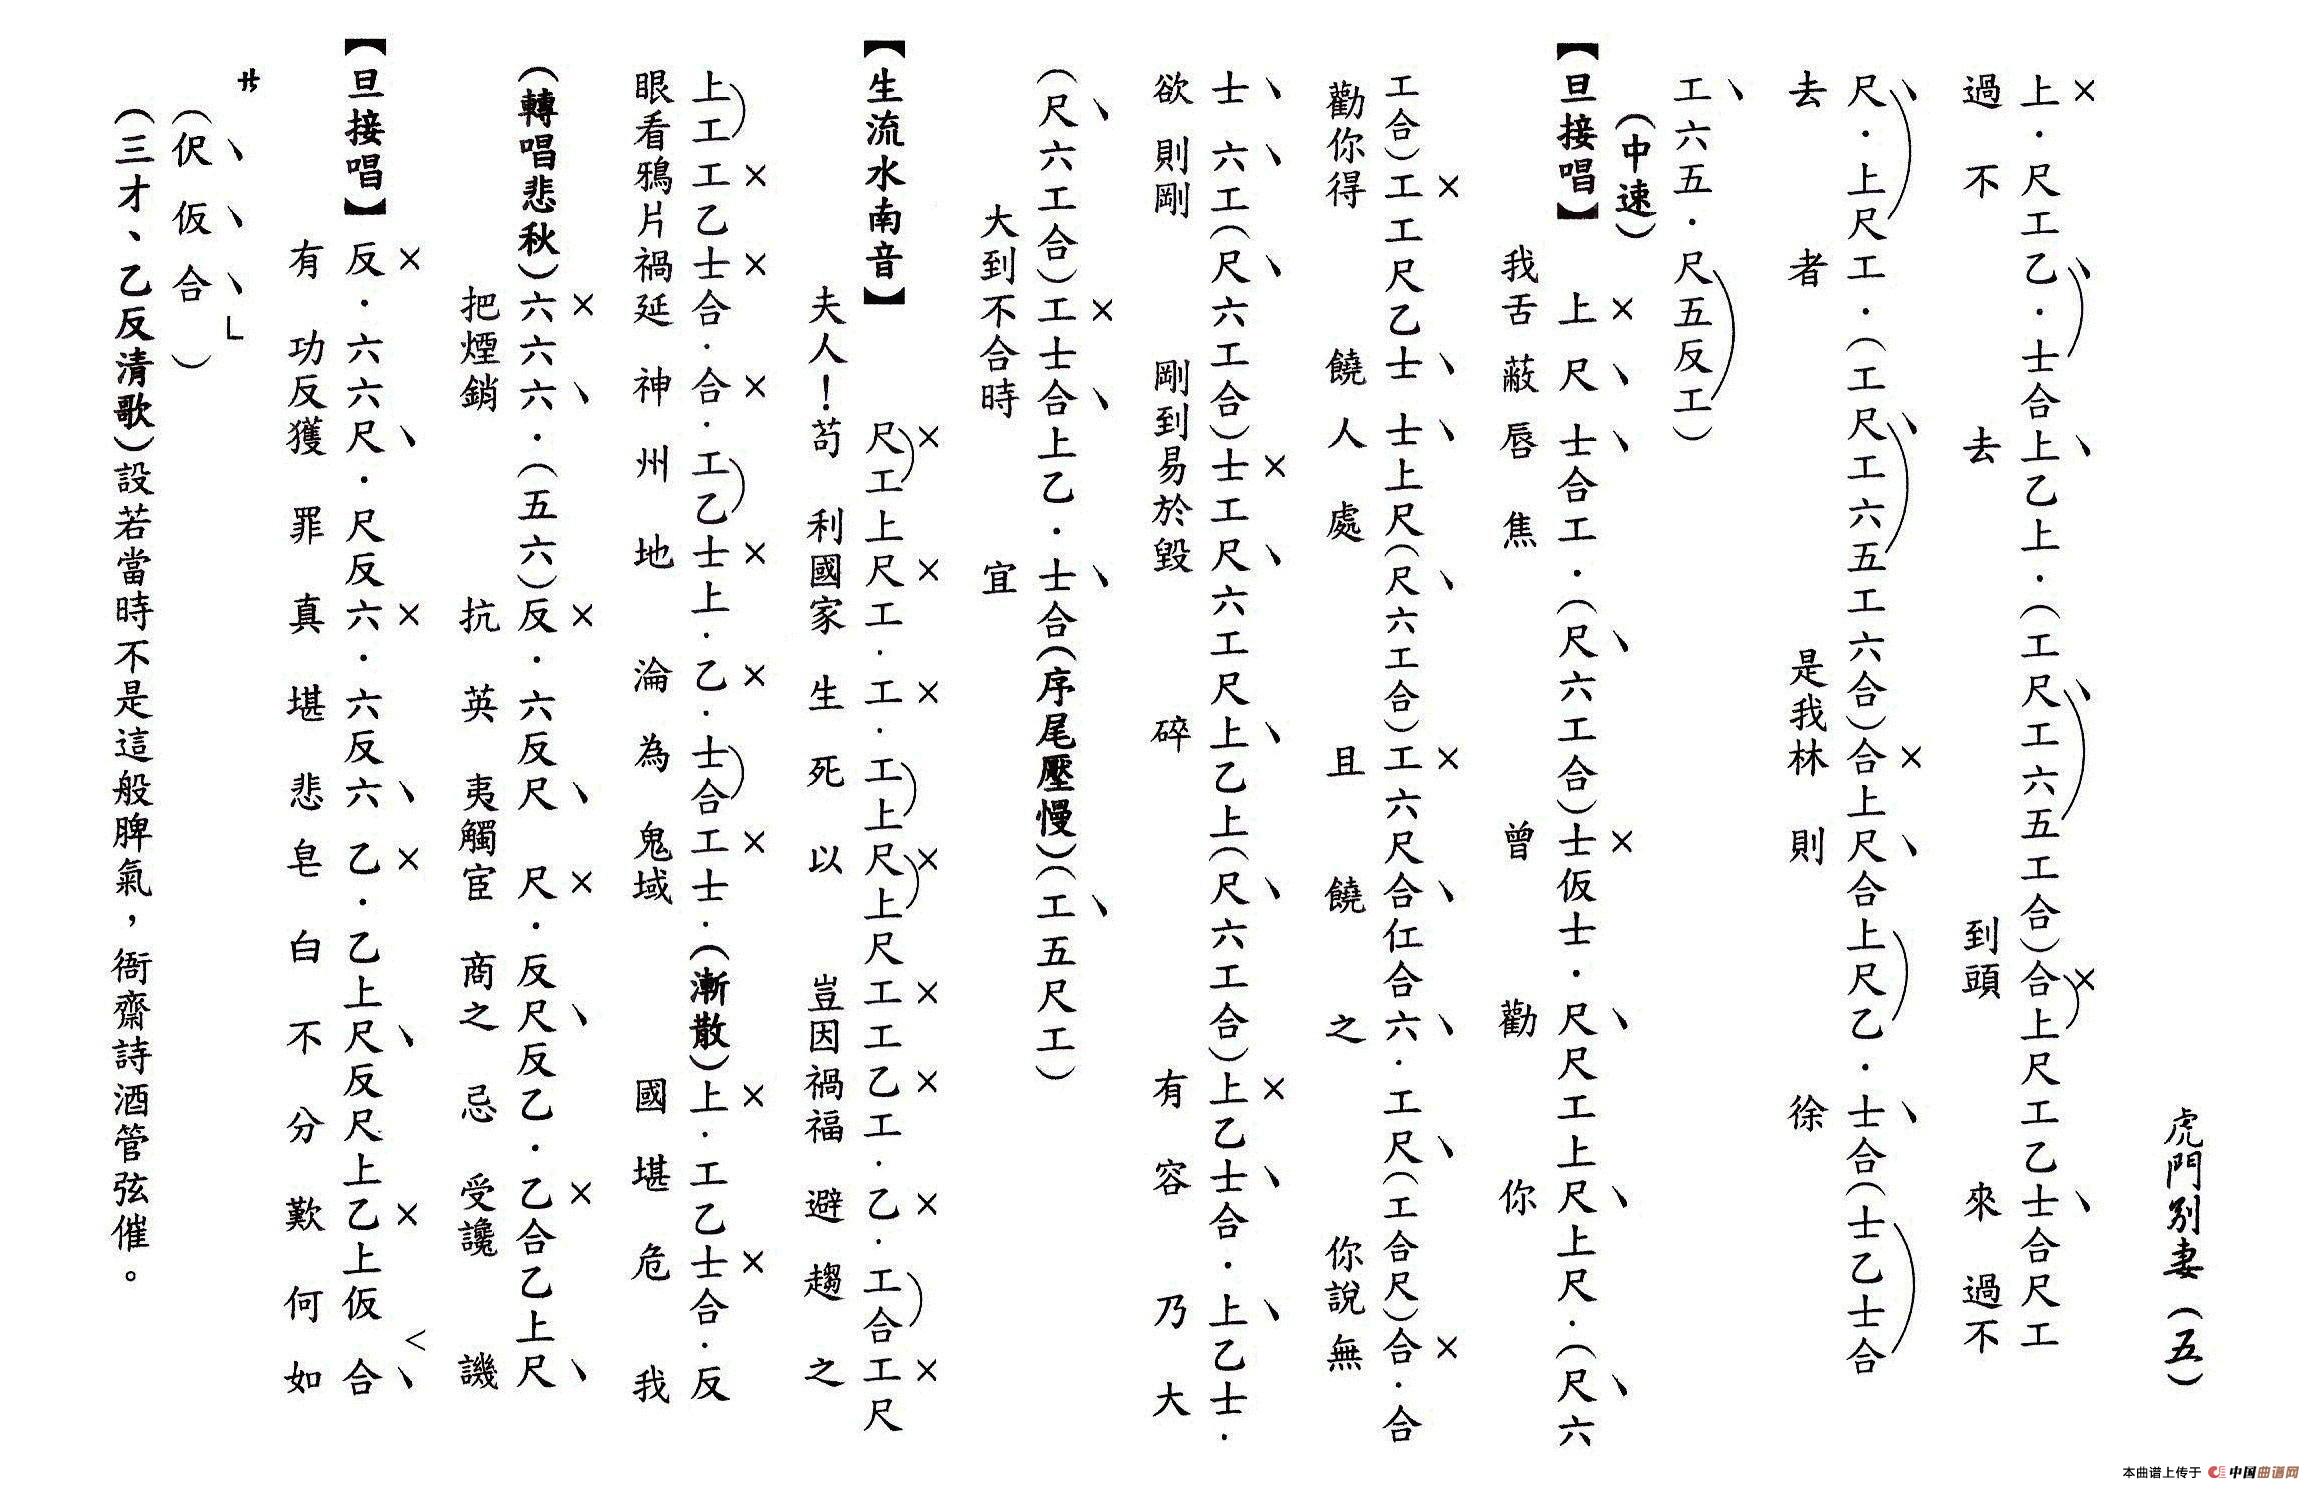 虎門別妻（五）
上．尺工乙．士合上乙上．（工尺工六五工合）合上尺工乙士合尺工
過不去到頭來過不
尺．上尺工．（工尺工六五工六合）合上尺合上尺乙．士合（士乙士合
去者是我林則徐
工六五．尺五反工）
（中速）
【旦接唱】上尺士合工．（尺六工合）士仮士．尺尺工上尺上尺．（尺六
我舌蔽唇焦曾勸你
工合）工工尺乙士士上尺（尺六工合）工六尺合仁合六．工尺（工合尺）合．合
勸你得饒人處且饒之你說無
士六工（尺六工合）士工尺六工尺上乙上（尺六工合）上乙士合．上乙士．
欲則剛剛到易於毀碎有容乃大
（尺六工合）工士合上乙．士合（序尾壓慢）（工五尺工）
大到不合時宜
【生流水南音】尺工上尺工．工．工上尺上尺工工乙工．乙．工合工尺
夫人！苟利國家生死以豈因禍福避趨之
上工工乙士合．合．工乙士上．乙．士合工士．（漸散）上．工乙士合．反
眼看鴉片禍延神州地淪為鬼域國堪危我
（轉唱悲秋）六六六．（五六）反．六反尺尺．反尺反乙．乙合乙上尺
把煙銷抗英夷觸宦商之忌受讒譏
【旦接唱】反．六六尺．尺反六．六反六乙．乙上尺反尺上乙上仮合
有功反獲罪真堪悲皂白不分歎何如
（伬仮合）
（三才、乙反清歌）設若當時不是這般脾氣，衙齋詩酒管弦催。
本曲谱上传于 中国曲谱网